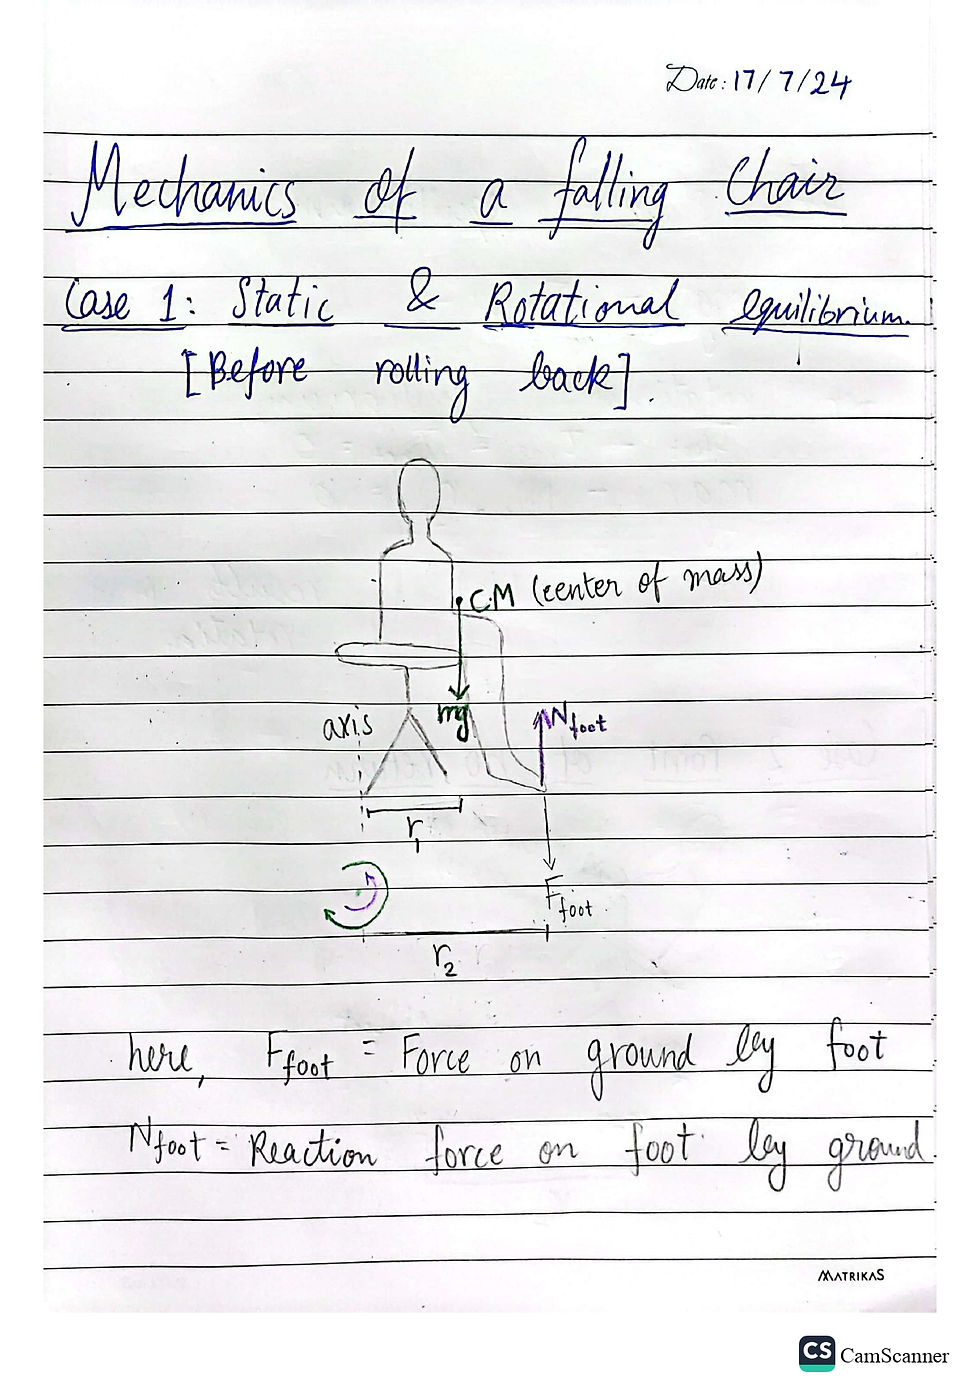 Date: 17/7/24
Mechanics of a falling Chair
Case 1: Static & Rotational equilibrium.
[Before rolling back].
C.M (center of mass)
mg
axis
Nfoot
r1
Ffoot
r2
here, Ffoot = Force on ground by foot
Nfoot = Reaction force on foot by ground.
MATRIKAS
CS CamScanner